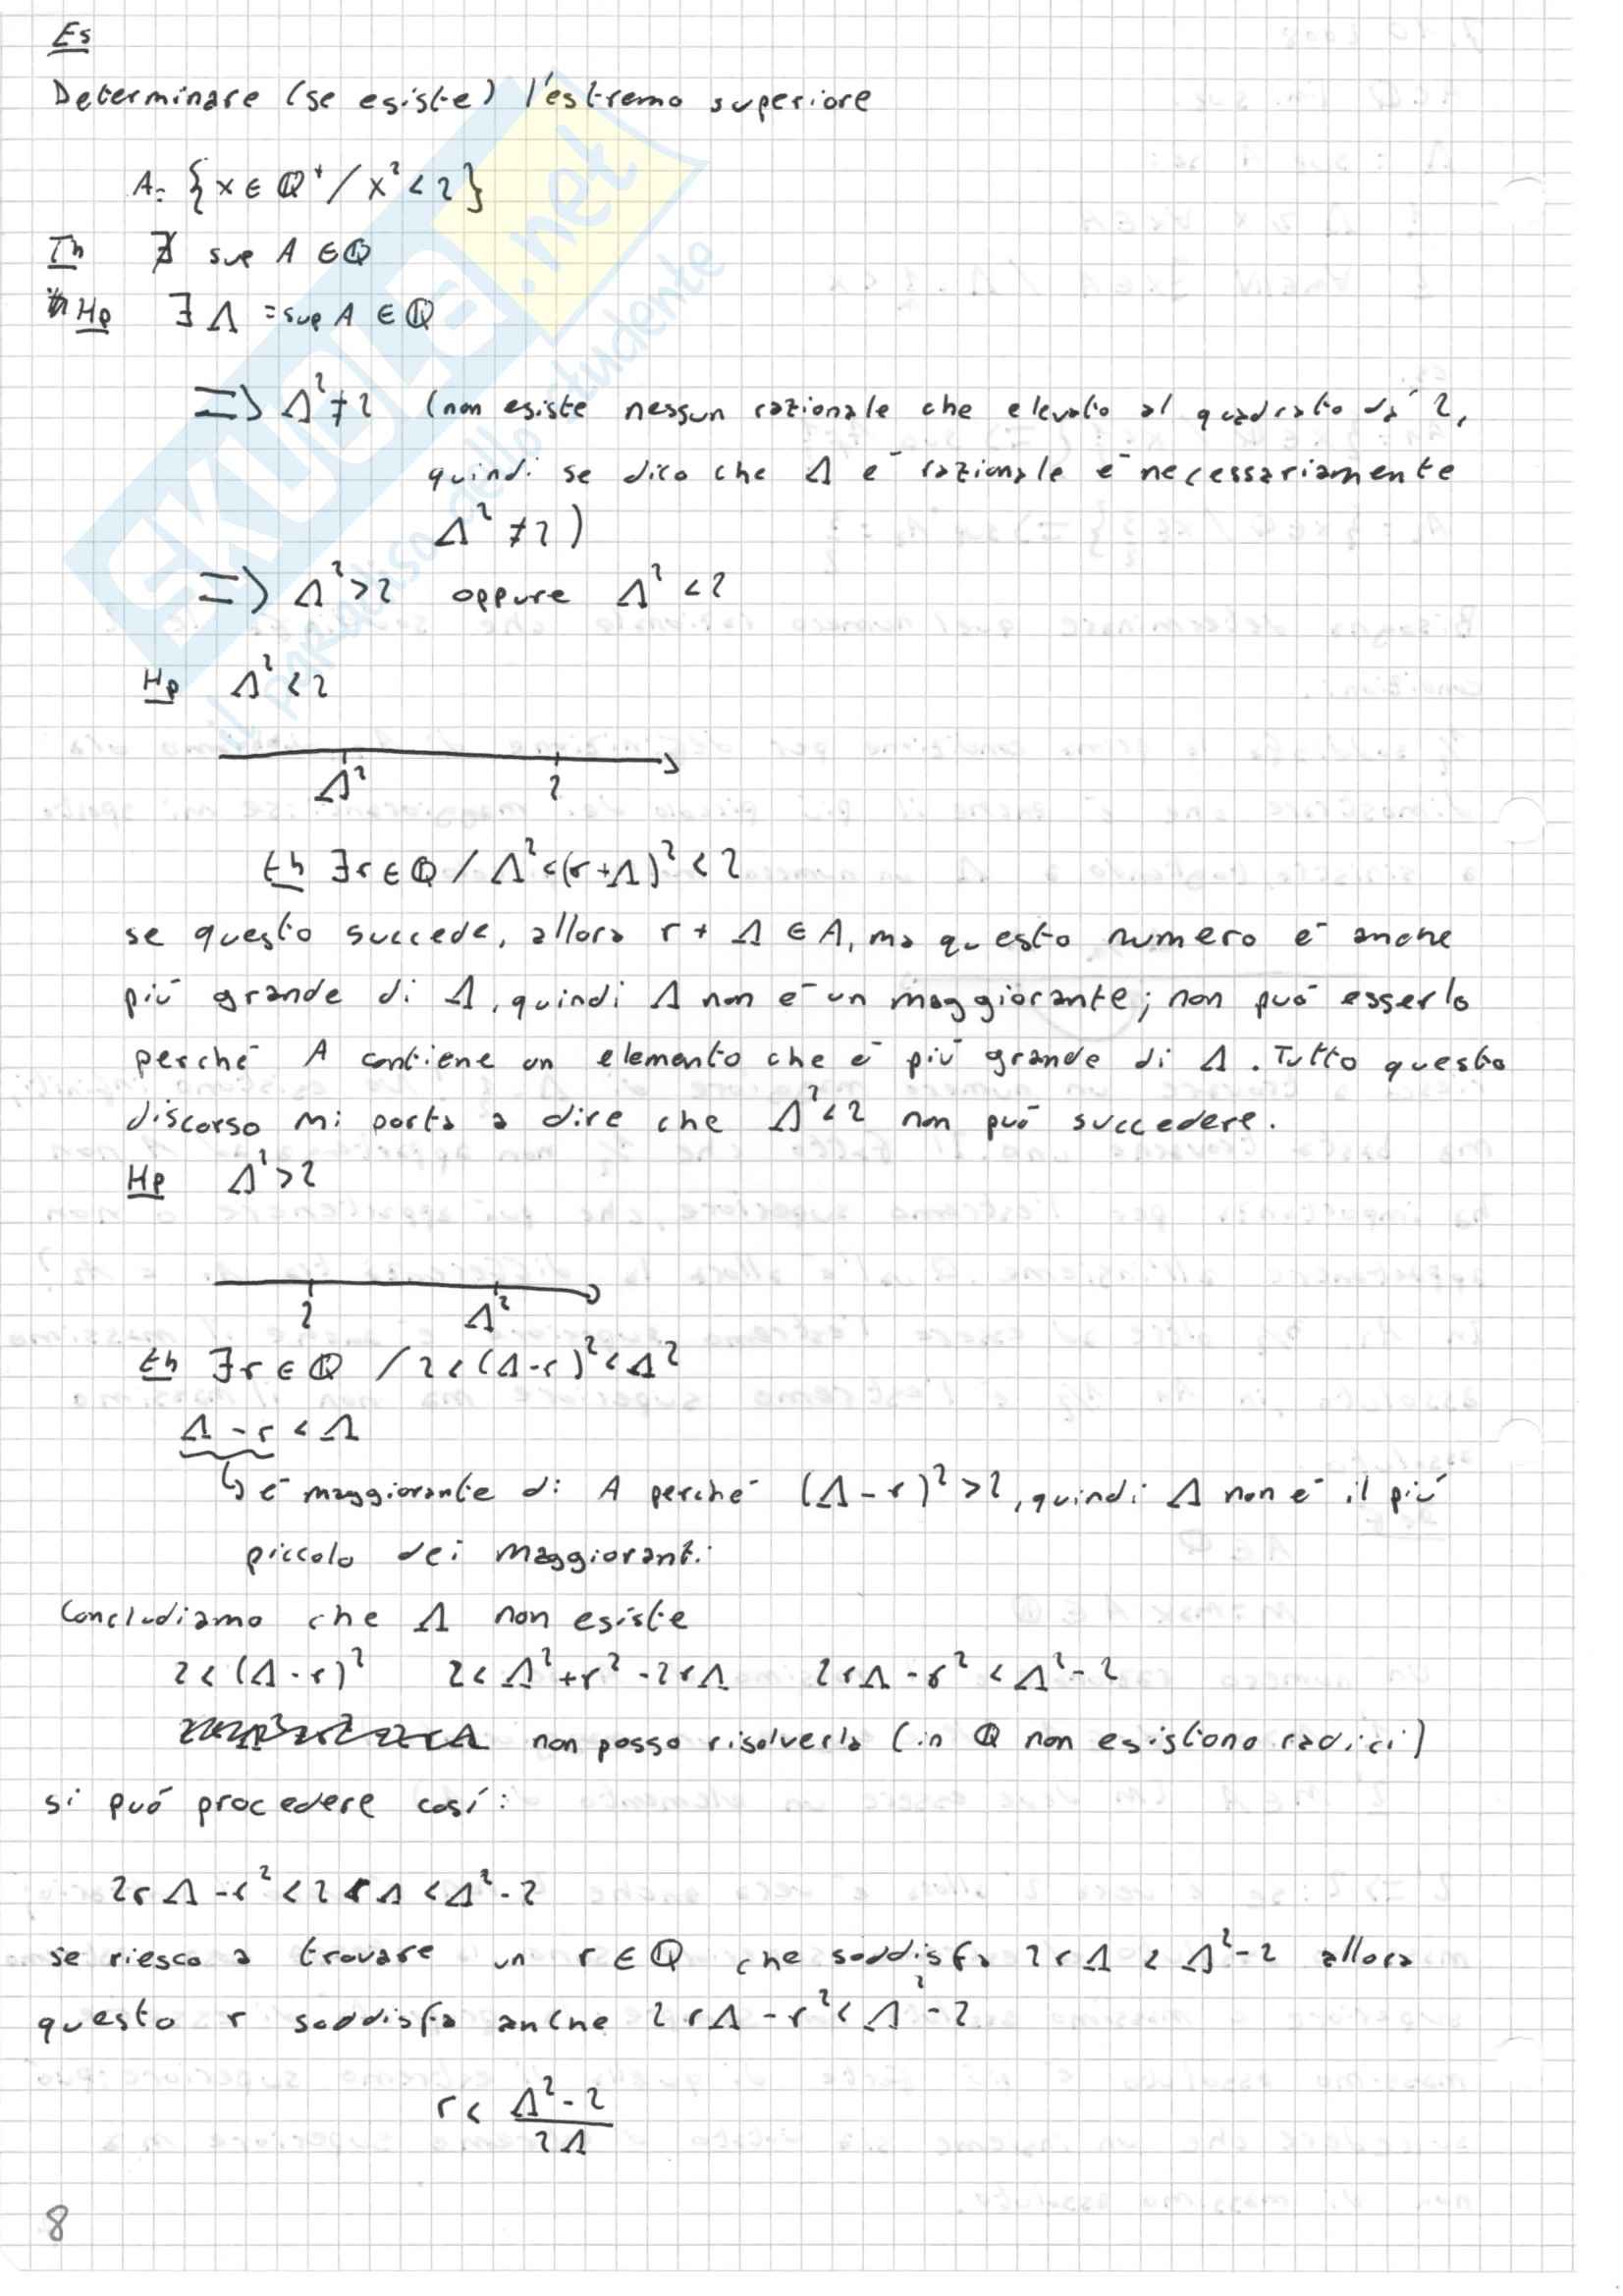 Es
Determinare (se esiste) l'estremo superiore
A= {x ∈ ℚ⁺ / x² < 2}
Th ∄ sup A ∈ ℚ
Hp ∃ Λ = sup A ∈ ℚ
=> Λ² ≠ 2 (non esiste nessun razionale che elevato al quadrato dà 2,
quindi se dico che Λ è razionale è necessariamente
Λ² ≠ 2)
=> Λ² > 2 oppure Λ² < 2
Hp Λ² < 2
Λ² 2
th ∃ r ∈ ℚ / Λ² < (r + Λ)² < 2
se questo succede, allora r + Λ ∈ A, ma questo numero è anche
più grande di Λ, quindi Λ non è un maggiorante; non può esserlo
perché A contiene un elemento che è più grande di Λ. Tutto questo
discorso mi porta a dire che Λ² < 2 non può succedere.
Hp Λ² > 2
2 Λ²
th ∃ r ∈ ℚ / 2 < (Λ - r)² < Λ²
Λ - r < Λ
↳ è maggiorante di A perché (Λ - r)² > 2, quindi Λ non è il più
piccolo dei maggioranti
Concludiamo che Λ non esiste
2 < (Λ - r)² 2 < Λ² + r² - 2rΛ 2rΛ - r² < Λ² - 2
non posso risolverla (in ℚ non esistono radici)
si può procedere così:
2rΛ - r² < 2rΛ < Λ² - 2
se riesco a trovare un r ∈ ℚ che soddisfa 2rΛ < Λ² - 2 allora
questo r soddisfa anche 2rΛ - r² < Λ² - 2
r < (Λ² - 2) / 2Λ
8
SKUOLA.net
il paradiso dello studente